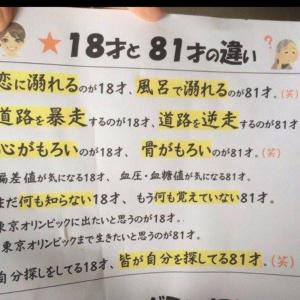 ★18才と81才の違い
恋に溺れるのが18才、風呂で溺れるのが81才。(笑)
道路を暴走するのが18才、道路を逆走するのが81才
心がもろいのが18才、骨がもろいのが81才。(笑)
偏差値が気になる18才、血圧・血糖値が気になる81才。
まだ何も知らない18才、もう何も覚えていない81才
東京オリンピックに出たいと思うのが18才。
東京オリンピックまで生きたいと思うのが81才。
自分探しをしてる18才、皆が自分を探してる81才。(笑)